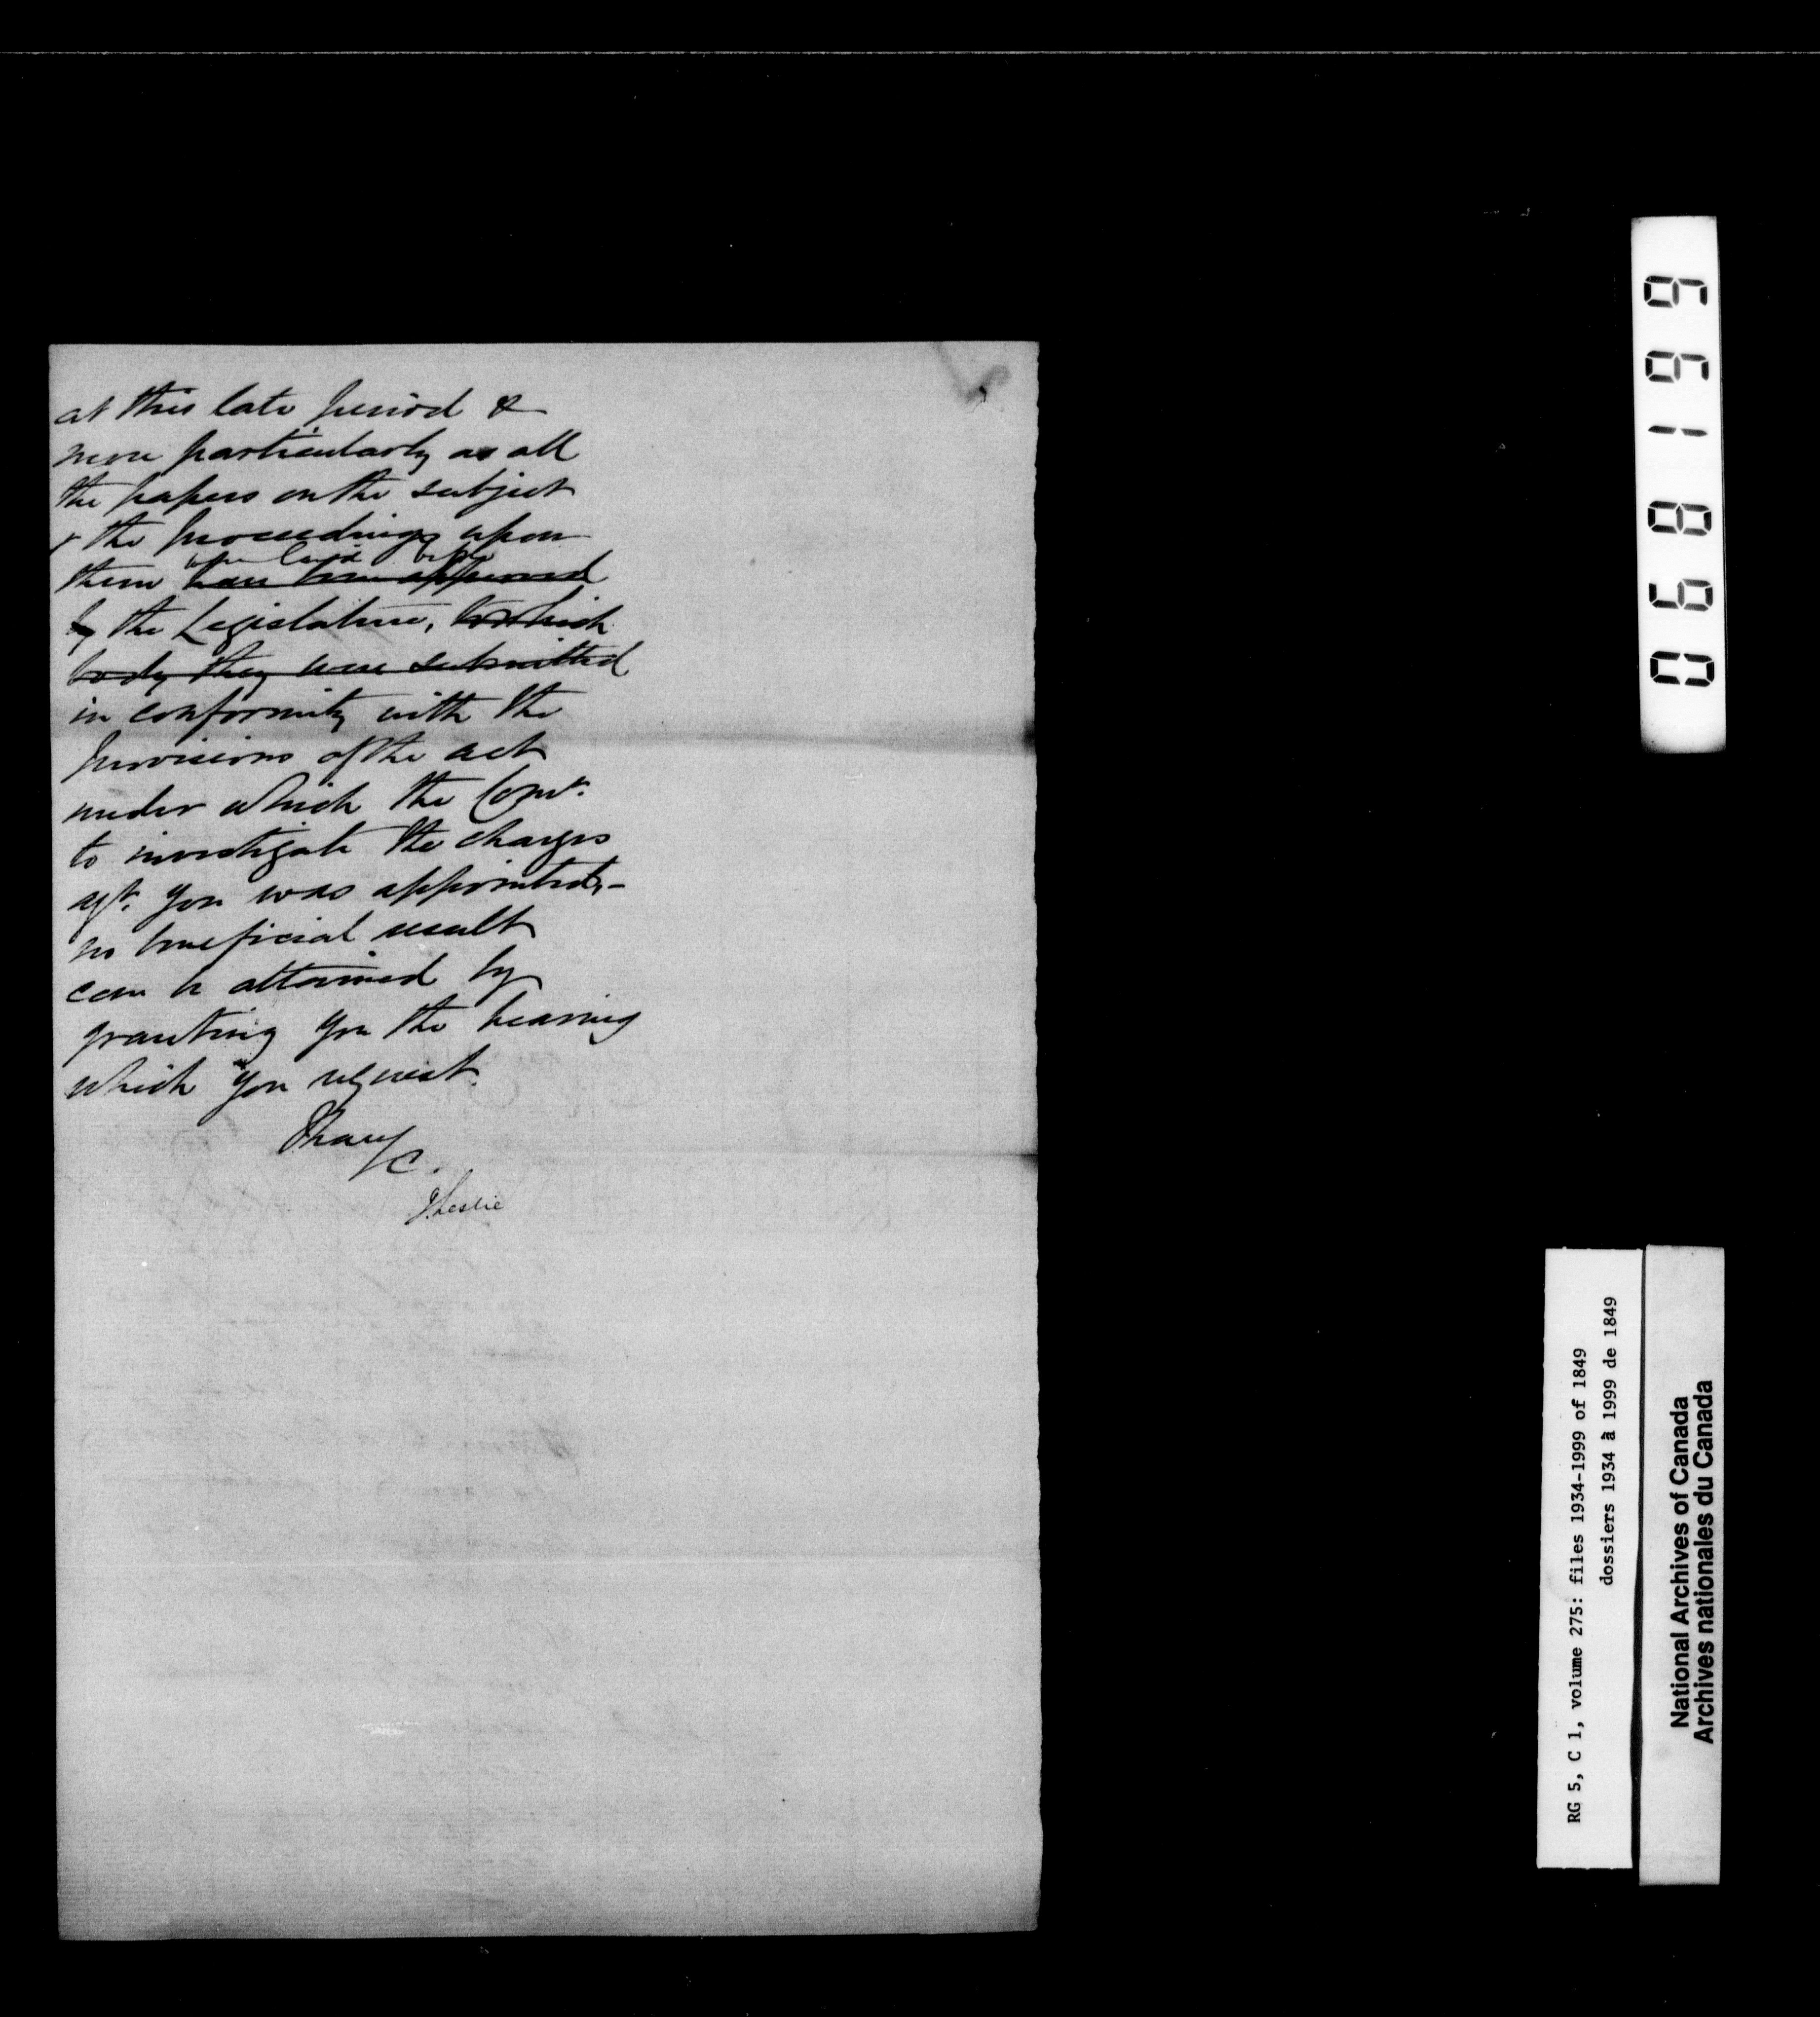 at this late period &
more particularly as all
the papers on the subject
& the proceedings upon
were laid before
them have been approved
by the Legislature, to which
body they were submitted
in conformity with the
provisions of the act
under which the Comr.
to investigate the charges
agt. you was appointed,-
no beneficial result
can be attained by
granting you the hearing
which you request.
I have
&c.
J Leslie
068199
RG 5, C 1, volume 275: files 1934-1999 of 1849
dossiers 1934 à 1999 de 1849
National Archives of Canada
Archives nationales du Canada